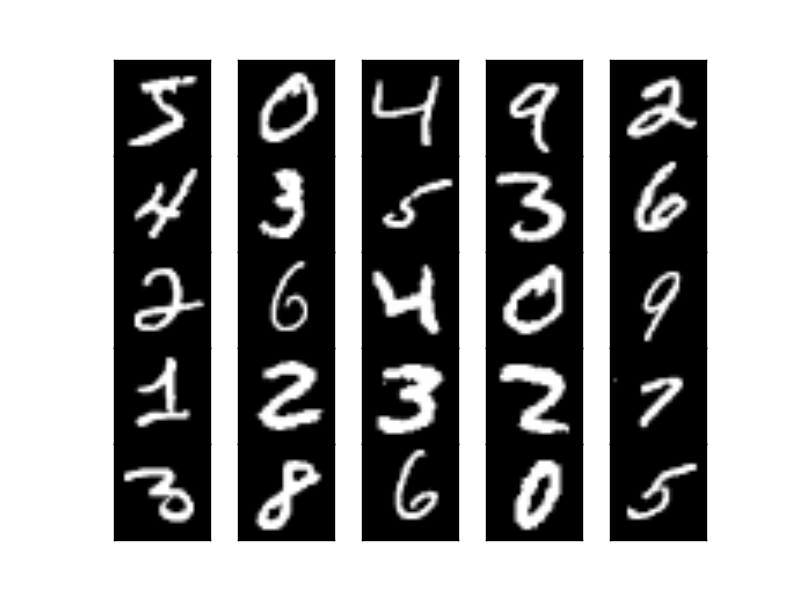 5 0 4 9 2
4 3 5 3 6
2 6 4 0 9
1 2 3 2 7
3 8 6 0 5